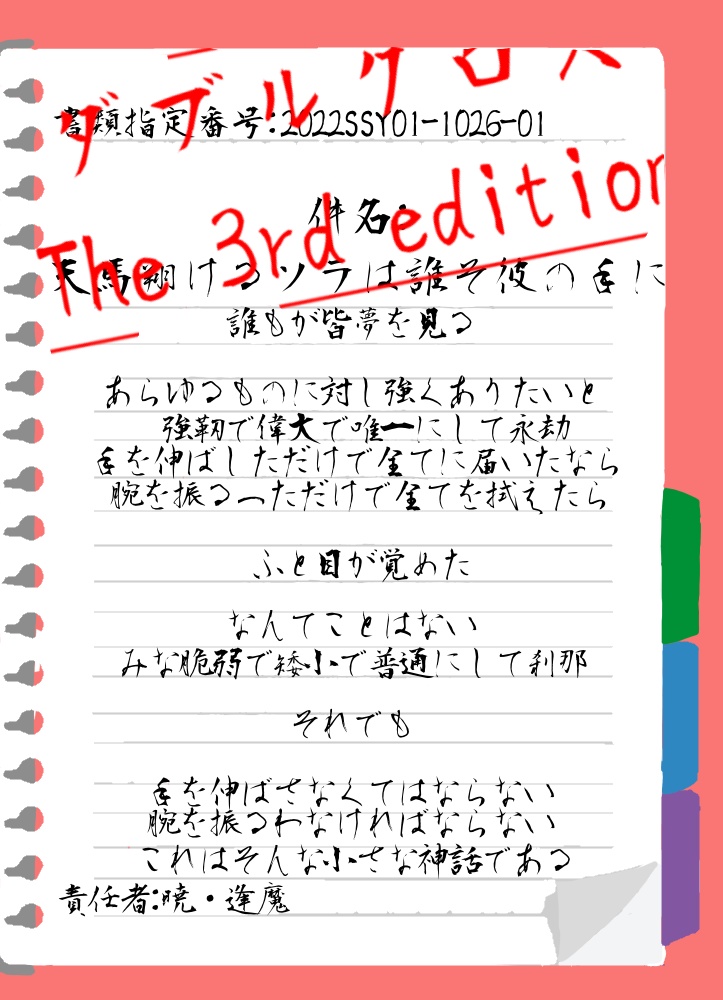 ダブルクロス
書類指定番号:2022SSY01-1026-01
The 3rd edition
件名:
天馬翔けるソラは誰そ彼の手に
誰もが皆夢を見る
あらゆるものに対し強くありたいと
強靭で偉大で唯一にして永劫
手を伸ばしただけで全てに届いたなら
腕を振るっただけで全てを拭えたら
ふと目が覚めた
なんてことはない
みな脆弱で矮小で普通にして刹那
それでも
手を伸ばさなくてはならない
腕を振るわなければならない
これはそんな小さな神話である
責任者:暁・逢魔